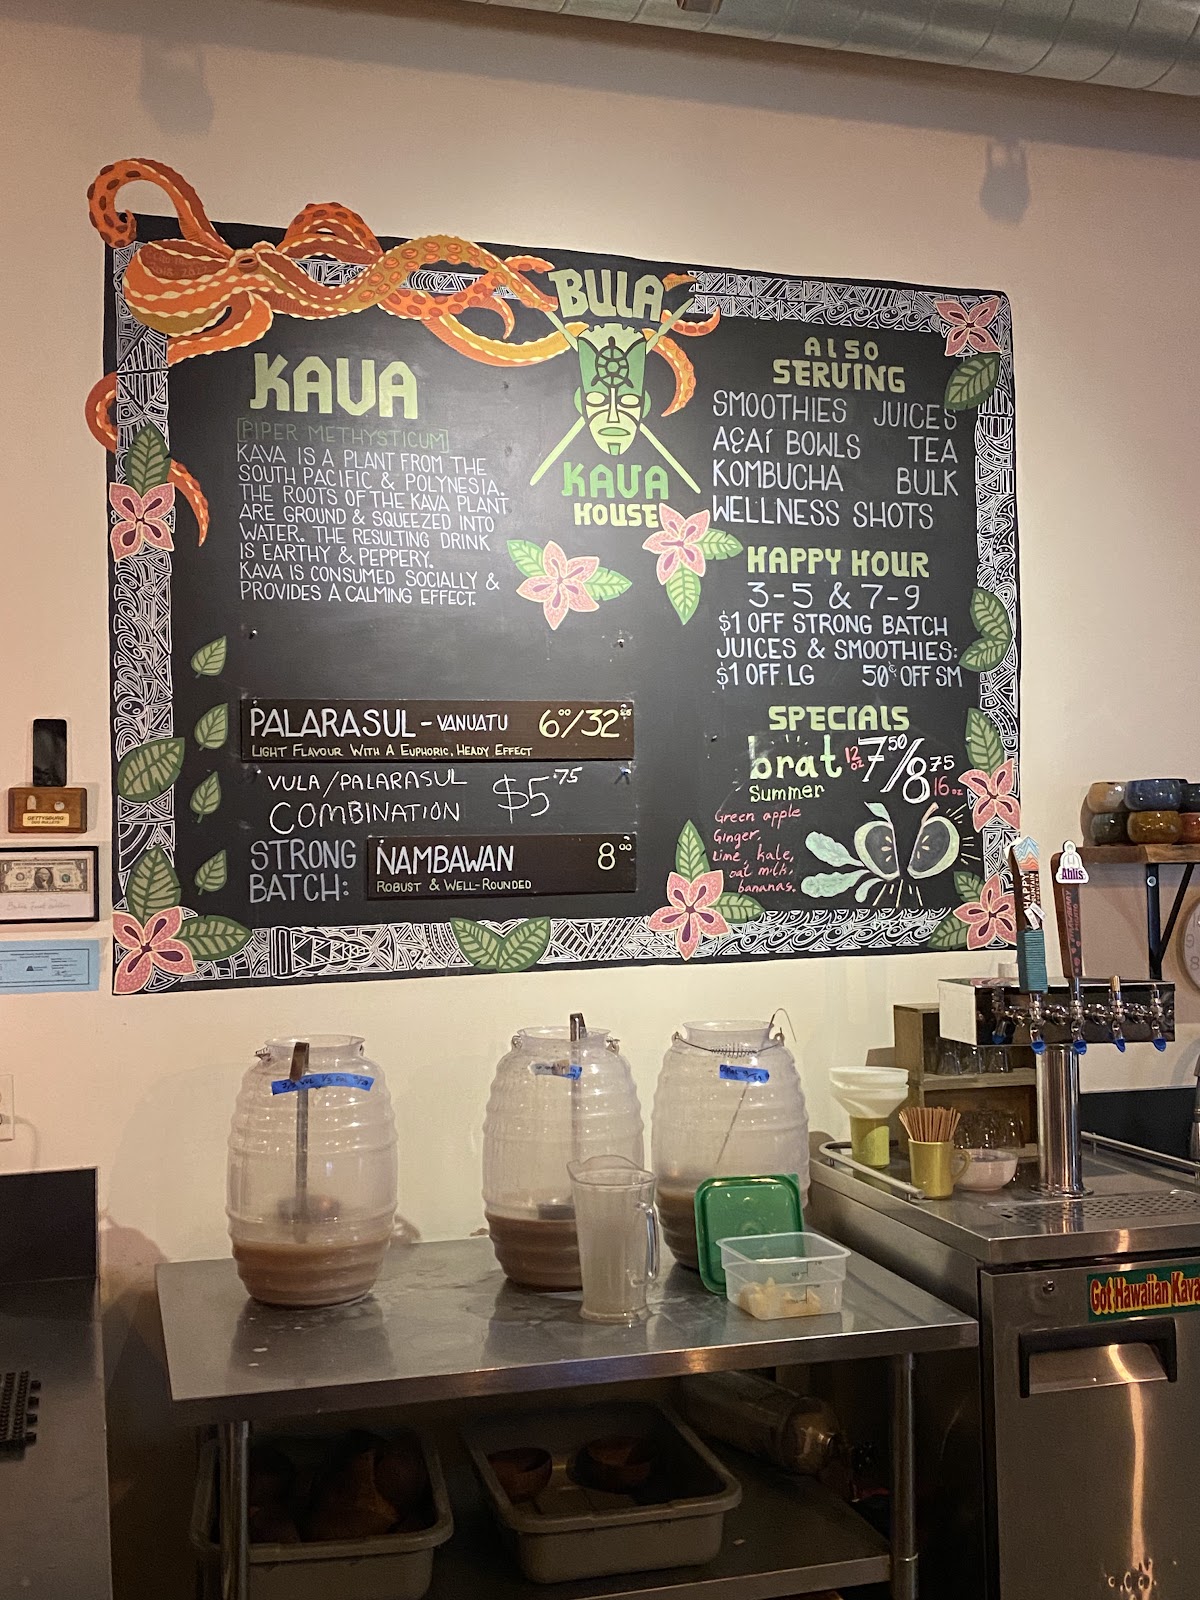 BULA
KAVA
HOUSE
KAVA
[PIPER METHYSTICUM]
KAVA IS A PLANT FROM THE
SOUTH PACIFIC & POLYNESIA.
THE ROOTS OF THE KAVA PLANT
ARE GROUND & SQUEEZED INTO
WATER. THE RESULTING DRINK
IS EARTHY & PEPPERY.
KAVA IS CONSUMED SOCIALLY &
PROVIDES A CALMING EFFECT.
PALARASUL - VANUATU 6.00/32
LIGHT FLAVOUR WITH A EUPHORIC, HEADY EFFECT
VULA/PALARASUL
COMBINATION $5.75
STRONG
BATCH:
NAMBAWAN 8.00
ROBUST & WELL-ROUNDED
ALSO
SERVING
SMOOTHIES JUICES
AÇAÍ BOWLS TEA
KOMBUCHA BULK
WELLNESS SHOTS
HAPPY HOUR
3-5 & 7-9
$1 OFF STRONG BATCH
JUICES & SMOOTHIES:
$1 OFF LG 50¢ OFF SM
SPECIALS
brat 12 oz 7.50/8.75 16 oz
Summer
Green apple
Ginger,
Lime, kale,
oat milk,
bananas.
GETTYSBURG
Ahlís
HAPPY
Got Hawaiian Kava